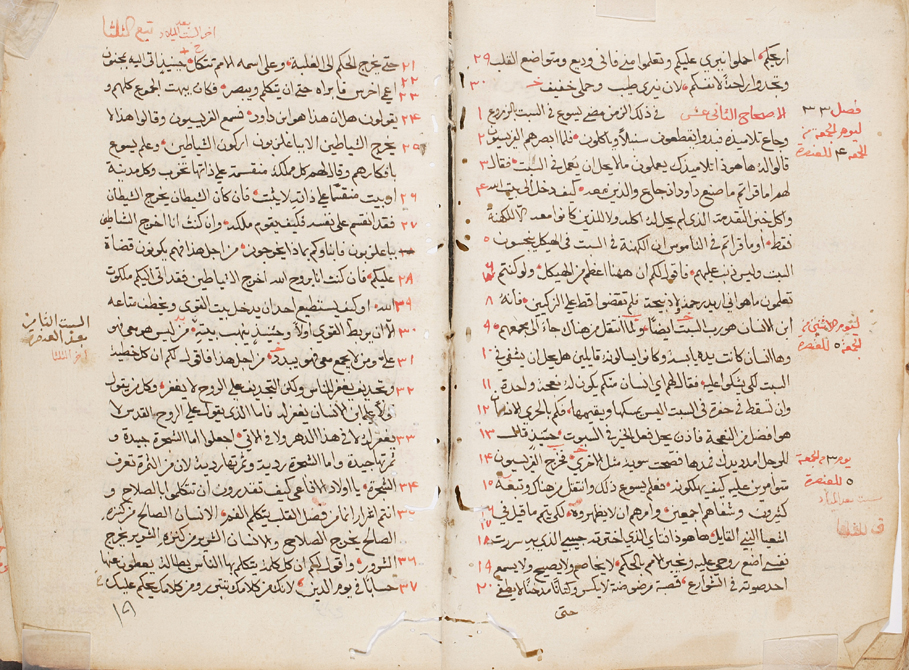 اريحكم احملوا نيري عليكم وتعلموا مني فاني وديع ومتواضع القلب ٢٩
وتجدوا راحة لانفسكم لان نيري طيب وحملي خفيف ٣٠
الاصحاح الثاني عشر في ذلك الزمن مضى يسوع في السبت بالزروع ١
وجاع تلاميذه فبدوا يقطعون سنبلا وياكلون فلما ابصرهم الفريسيون ٢
قالوا له ها هوذا تلاميذك يعملون ما لا يحل ان يعمل في السبت فقال ٣
لهم اما قراتم ما صنع داود اذ جاع والذين معه كيف دخل الى بيت الله ٤
واكل خبز التقدمة الذي لم يحل له اكله ولا للذين كانوا معه الا للكهنة
فقط او ما قراتم في الناموس ان الكهنة في السبت في الهيكل ينجسون ٥
السبت وليس ذنب عليهم فاقول لكم ان ههنا اعظم من الهيكل ولو كنتم ٦
تعلمون ما هو اني اريد رحمة لا ذبيحة لم تقضوا قط على الزكيين فانه ٨
ابن الانسان هو رب السبت ايضا ولما انتقل من هناك جاء الى مجمعهم ٩
وها انسان كانت يده يابسة وكانوا يسالونه قايلين هل يحل ان يشفى في ١٠
السبت لكي يشكوا عليه فقال لهم اي انسان منكم يكون له نعجة واحدة ١١
وان تسقط في حفرة في السبت اليس يمسكها ويقيمها فكم بالحري الانسان ١٢
هو افضل من النعجة فاذن يحل فعل الخير في السبوت حينيذ قال ١٣
للرجل امدد يدك فمدها فصحت سوية مثل الاخرى فخرج الفريسيون ١٤
متوامرين عليه كيف يهلكونه فعلم يسوع ذلك وانتقل من هناك وتبعه ١٥
كثيرون وشفاهم اجمعين وامرهم ان لا يظهروه لكي يتم ما قيل في ١٦ ١٧
اشعيا النبي القايل ها هوذا فتاي الذي اخترته حبيبي الذي به سررت ١٨
نفسي اضع روحي عليه ويخبر الامم بالحكم لا يخاصم ولا يصيح ولا يسمع ١٩
احد صوته في الشوارع قصبة مرضوضة لا يكسر وكتانا مدخنا لا يطفي ٢٠
حتى
فصل ٣٣
ليوم الجمعة من
الجمعة ٤ للعنصرة
ليوم الاثنين من
الجمعة ٥ للعنصرة
يوم ٣ من الجمعة
٥ للعنصرة
تبع الثلثا
٢١ حتى يخرج الحكم الى الغلبة وعلى اسمه الامم تتكل حينيذ اتي اليه بمجنون
٢٢ ٢٣ اعمى اخرس فابراه حتى ان يتكلم ويبصر فكان يبهت الجموع كلهم و
٢٤ يقولون هل ان هذا هو ابن داود فسمع الفريسيون وقالوا هذا لا
٢٥ يخرج الشياطين الا بباعلزبون اركون الشياطين وعلم يسوع
بافكارهم وقال لهم كل مملكة منقسمة على ذاتها تخرب وكل مدينة
٢٦ او بيت منقسما على ذاته لا يثبت فان كان الشيطان يخرج الشيطان
٢٧ فقد انقسم على نفسه فكيف يقوم ملكه وان كنت انا اخرج الشياطين
بباعلزبون فابناوكم بماذا يخرجون من اجل هذا انهم يكونون قضاة
٢٨ عليكم فان كنت انا بروح الله اخرج الشياطين فقد اتى اليكم ملكوت
٢٩ الله او كيف يستطيع احد ان يدخل بيت القوي ويخطف متاعه
٣٠ الا ان يربط القوي اولا وحينيذ ينهب بيته من ليس هو معي هو
٣١ علي ومن لا يجمع معي فهو يبدد من اجل هذا اقول لكم ان كل خطية
٣٢ وتجديف يغفر للناس ولكن التجديف على الروح لا يغفر وكل من يقول
قولا على ابن الانسان يغفر له فاما الذي يقول على الروح القدس لا
٣٣ يغفر له لا في هذا الدهر ولا في الاتي اجعلوا اما الشجرة جيدة و
ثمرتها جيدة واما الشجرة ردية وثمرتها ردية لان من الثمرة تعرف
٣٤ الشجرة يا اولاد الافاعي كيف تقدرون ان تتكلموا بالصلاح و
٣٥ انتم اشرار انما من فضل القلب يتكلم الفم الانسان الصالح من كنزه
الصالح يخرج الصلاح والانسان الشرير من كنزه الشرير يخرج
٣٦ الشرور واقول لكم ان كل كلمة يتكلم بها الناس بطالة يعطون عنها
٣٧ حسابا في يوم الدين لانك من كلامك تتبرر ومن كلامك يحكم عليك
السبت الثامن
بعد العنصرة